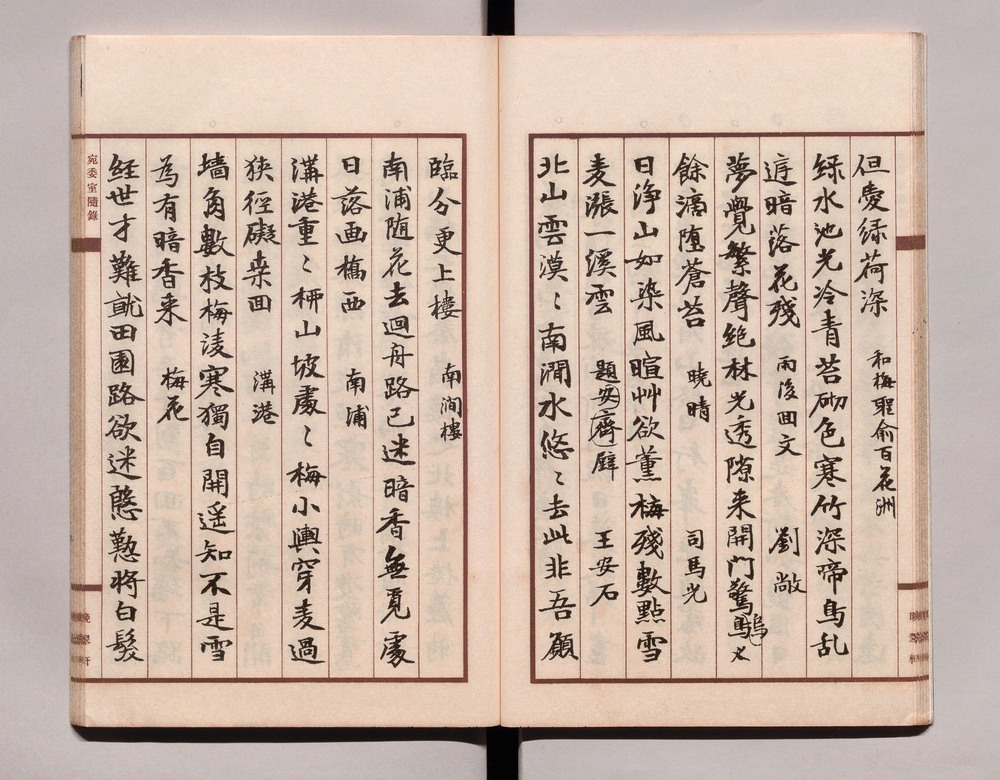 但愛緑荷深 和梅聖俞百花洲
緑水池光冷青苔砌色寒竹深啼鳥乱
庭暗落花殘 雨後回文 劉敞
夢覺繁聲絶林光透隙来開門驚烏鳥
餘滴堕蒼苔 曉晴 司馬光
日浄山如染風暄艸欲薫梅殘數點雪
麦漲一溪雲 題安齊壁 王安石
北山雲漠〻南澗水悠〻去此非吾願
臨分更上樓 南澗樓
南浦随花去迴舟路已迷暗香無覓處
日落画橋西 南浦
溝港重〻柳山坡處〻梅小輿穿麦過
狭徑礙桒回 溝港
墻角數枝梅淩寒獨自開遥知不是雪
為有暗香来 梅花
経世才難就田園路欲迷慇懃将白髮
宛委室隨錄